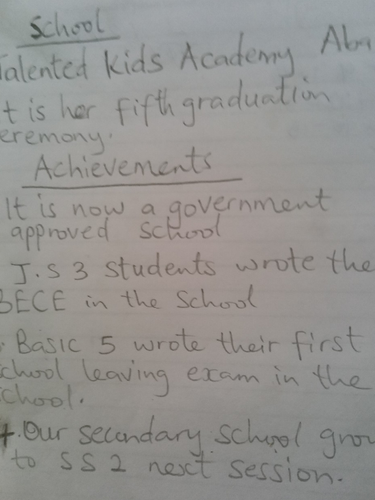 School
Talented Kids Academy Aba
It is her fifth graduation
ceremony.
Achievements
It is now a government
approved school
J.S 3 students wrote the
BECE in the School
Basic 5 wrote their first
school leaving exam in the
school.
Our secondary school grow
to SS 2 next session.